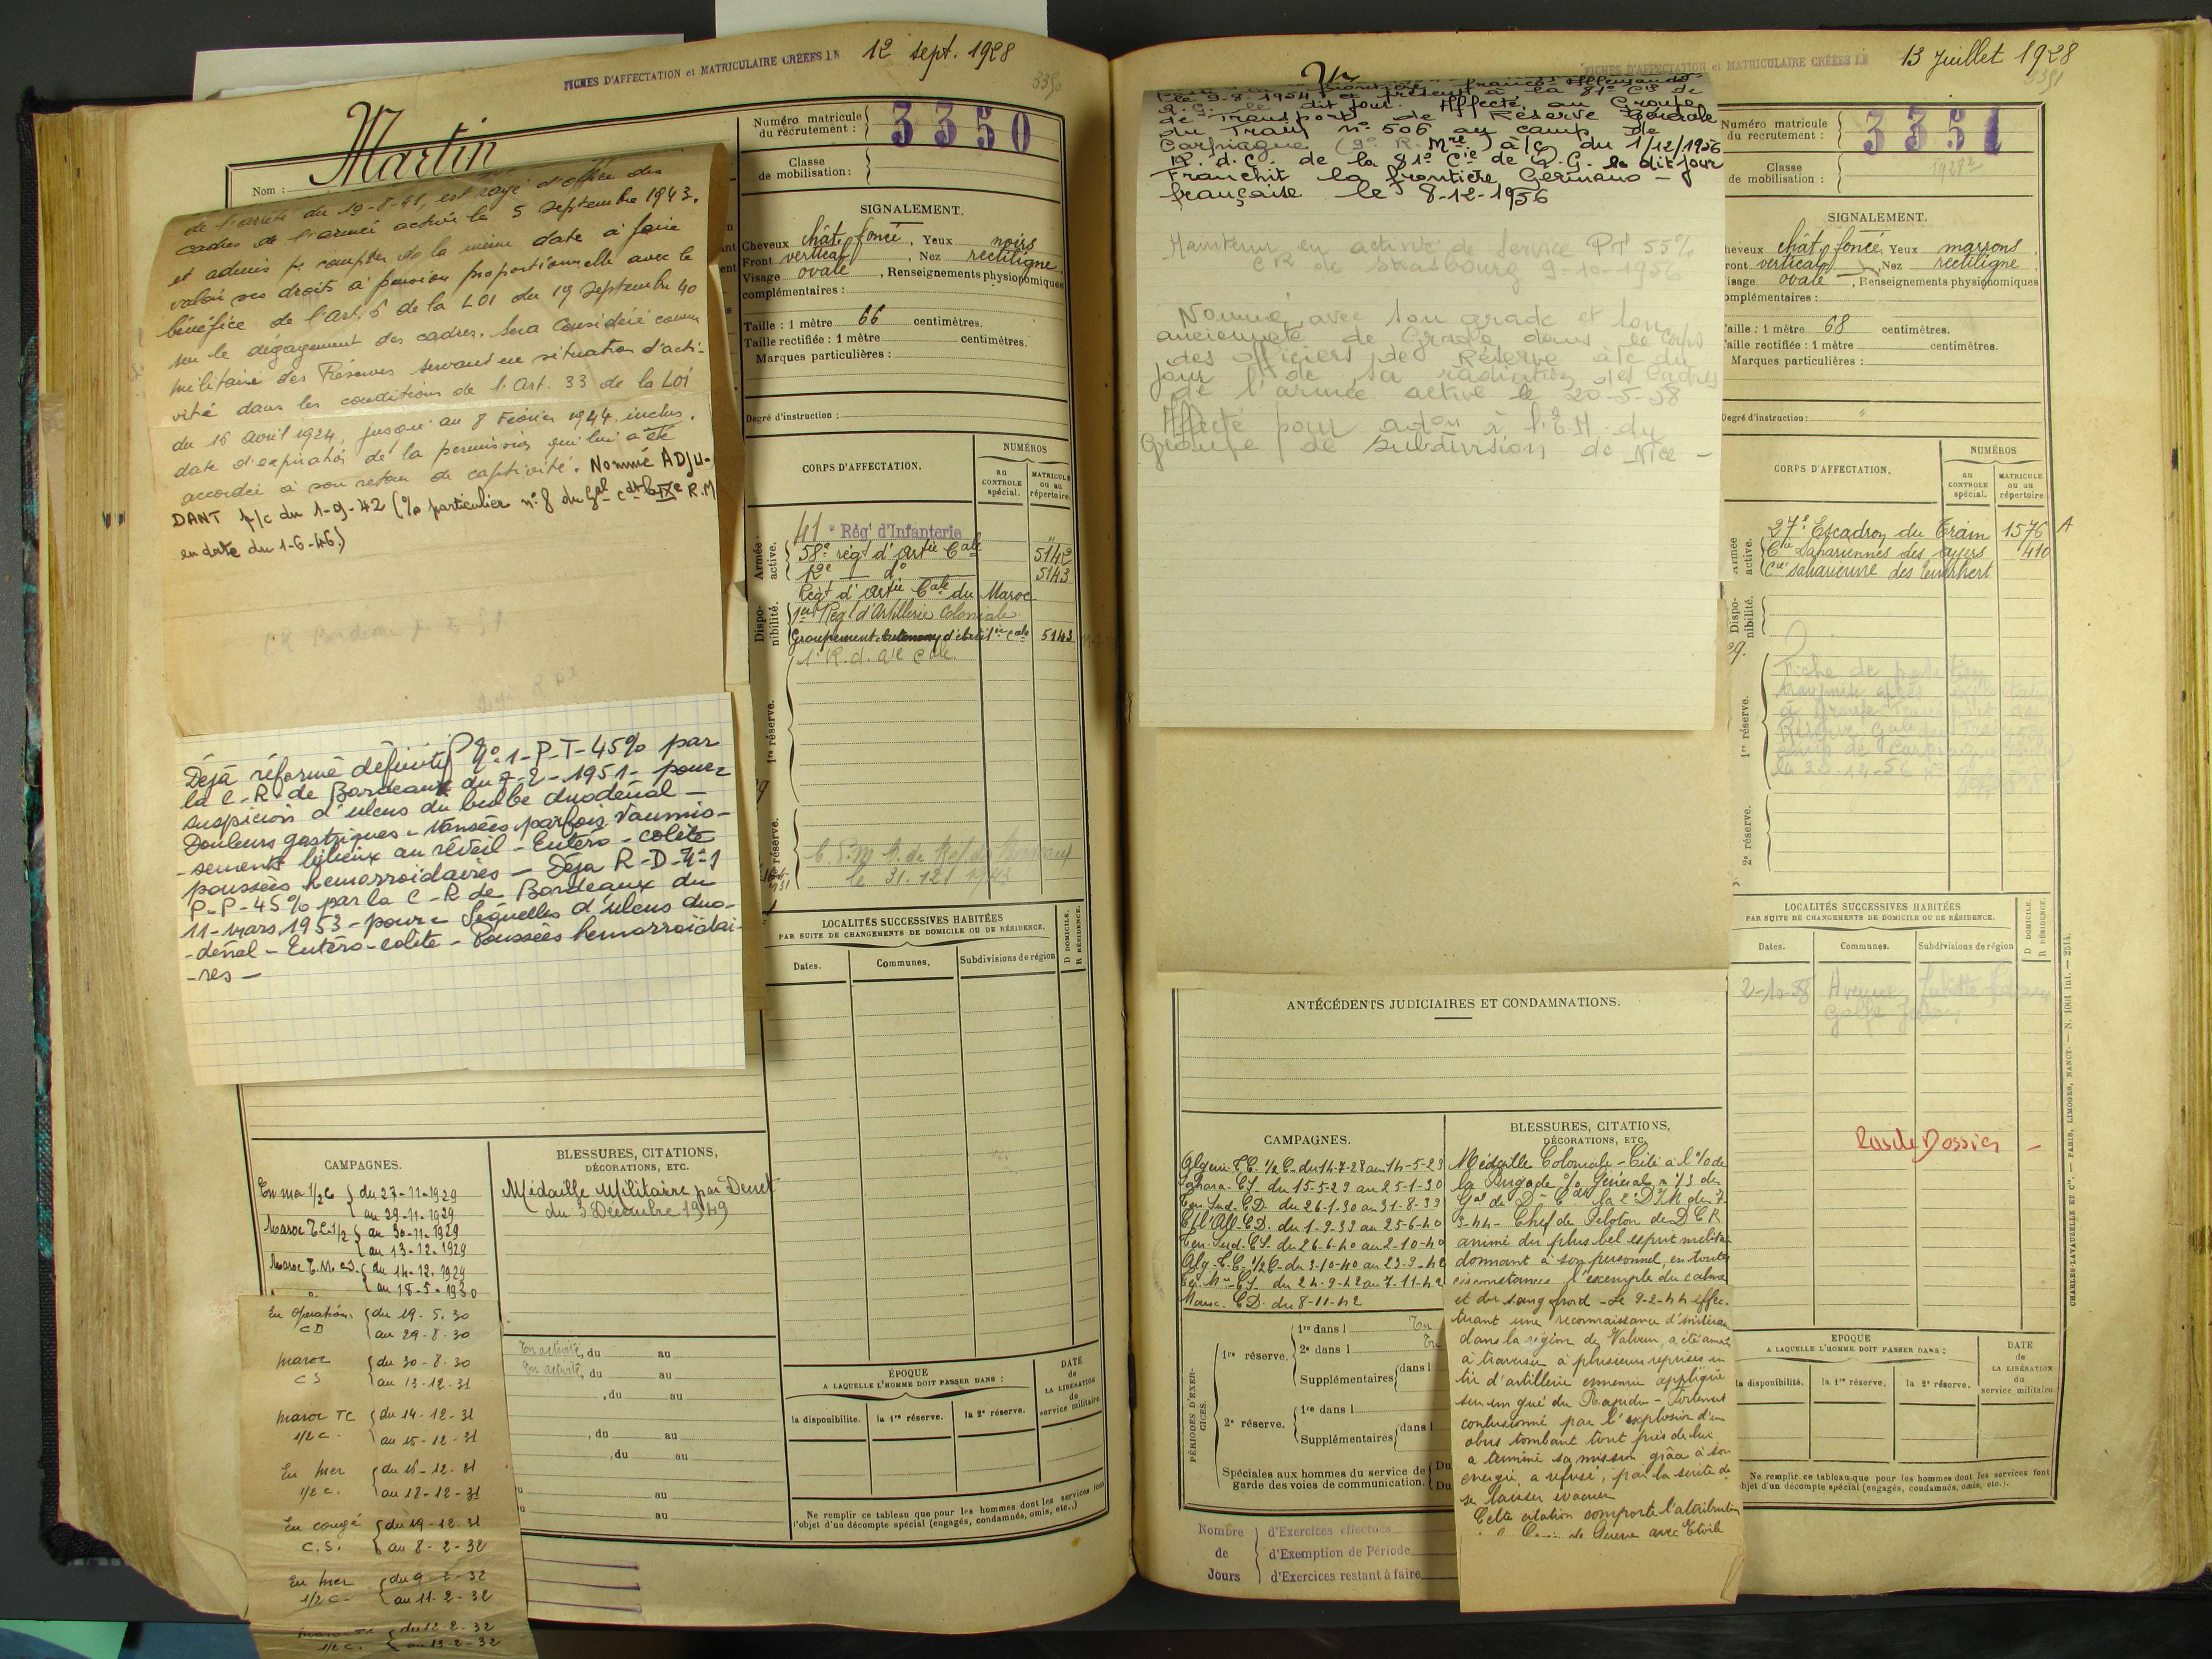 FICHES D'AFFECTATION et MATRICULAIRE CRÉÉES LE 12 sept. 1928
3350
Martin
Nom :
Numéro matricule du recrutement : 3350
Classe de mobilisation :
de l'arrêté du 19-8-41, est rayé d'office des
cadres de l'armée active le 5 septembre 1943.
et admis p. compter de la même date à faire
valoir ses droits à pension proportionnelle avec le
bénéfice de l'art. 6 de la LOI du 19 septembre 40
sur le dégagement des cadres. Sera considéré comme
militaire des Réserves servant en situation d'acti-
vité dans les conditions de l'Art. 33 de la LOI
du 15 avril 1924, jusqu'au 8 Février 1944 inclus.
date d'expiration de la permission qui lui a été
accordée à son retour de captivité. Nommé ADJU-
DANT p/c du 1-9-42 (% particulier n° 8 du Gal Cdt la IXe R.M
en date du 1-6-46)
Déjà réformé définitif N°1-P-T-45% par
la C-R de Bordeaux du 7-2-1951- pour :
suspicion d'ulcus du bulbe duodénal -
Douleurs gastriques - Nausées parfois Vaumis-
-sements bilieux au réveil - Entéro-colite
poussées hemorroidaires - Déja R-D-N°1
P-P-45% par la C-R de Bordeaux du
11-mars 1953 - pour : Séquelles d'ulcus duo-
-dénal - Entéro-colite - Poussées hemorroïdai-
-res -
SIGNALEMENT.
Cheveux chât. foncé, Yeux noirs
Front vertical, Nez rectiligne
Visage ovale, Renseignements physionomiques
complémentaires :
Taille : 1 mètre 66 centimètres.
Taille rectifiée : 1 mètre centimètres.
Marques particulières :
Degré d'instruction :
CORPS D'AFFECTATION.
NUMÉROS
au CONTROLE spécial.
MATRICULE ou au répertoire.
Armée active.
41e Régt d'Infanterie "
58e régt d'Artie Cale 5142
12e d° 5143
Régt d'Artie Cale du Maroc
Disponibilité.
1er Régt d'Artillerie Coloniale
Groupement Autonome d'artillie cale 5143
1° R.d. Aie Cale.
1re réserve.
2e réserve.
le 31.12 1943
LOCALITÉS SUCCESSIVES HABITÉES
PAR SUITE DE CHANGEMENTS DE DOMICILE OU DE RÉSIDENCE.
D DOMICILE.
R RÉSIDENCE.
Dates.
Communes.
Subdivisions de région
CAMPAGNES.
En mer 1/2 C du 27-11-1929
au 29-11-1929
Maroc T.C-1/2 au 30-11-1929
au 13-12-1929
Maroc T.M. CS. du 14-12-1929
au 18-5-1930
En opérations du 19-5-30
CD au 29-8-30
Maroc du 30-8-30
CS au 13-12-31
Maroc TC du 14-12-31
1/2 C. au 15-12-31
En mer du 15-12-31
1/2 C. au 18-12-31
En congé du 19-12-31
C.S. au 8-2-32
En mer du 9-2-32
1/2 C- au 11-2-32
Maroc TC du 12-2-32
1/2 C. au 13-2-32
BLESSURES, CITATIONS,
DÉCORATIONS, ETC.
Médaille Militaire par Decret
du 3 Décembre 1949
En activité, du au
En activité, du au
, du au
, du au
, du au
au
au
ÉPOQUE
A LAQUELLE L'HOMME DOIT PASSER DANS :
la disponibilité.
la 1re réserve.
la 2e réserve.
DATE
de
LA LIBÉRATION
du
service militaire.
Ne remplir ce tableau que pour les hommes dont les services font
l'objet d'un décompte spécial (engagés, condamnés, omis, etc.,)
FICHES D'AFFECTATION et MATRICULAIRE CRÉÉES LE 13 Juillet 1928
3351
Numéro matricule du recrutement : 3351
Classe de mobilisation : 1928
le 9-8-1954 et présent à la 81e Cie de
Q.G. le dit jour. Affecté au Groupe
de Transport de Réserve Générale
du Train n° 506 au camp de
Carpiagne (9° R. Mre) à/c du 1/12/1956
R.d.C. de la 81e Cie de Q.G. le dit jour
Franchit la frontière Germano -
française le 8-12-1956
Maintenu en activité de Service PT 55%
CR de Strasbourg 9-10-1956
Nommé avec son grade et son
ancienneté de Grade dans le Corps
des officiers de Réserve à/c du
jour de sa radiation des Cadres
de l'armée active le 20-5-58
Affecté pour adon à l'E.M. du
Groupe de Subdivision de Nice -
SIGNALEMENT.
Cheveux chât. foncé, Yeux marrons
Front vertical, Nez rectiligne
Visage ovale, Renseignements physionomiques
complémentaires :
Taille : 1 mètre 68 centimètres.
Taille rectifiée : 1 mètre centimètres.
Marques particulières :
Degré d'instruction : "
CORPS D'AFFECTATION.
NUMÉROS
au CONTROLE spécial.
MATRICULE ou au répertoire
Armée active.
27e Escadron du Train 1576 A
Cie Sahariennes des 410
Cie saharienne des
Disponibilité.
1re réserve.
Fiche de
à Groupe Transport de
Réserve Gale du Train
camp de Carpiagne
le 20-12-56
2e réserve.
LOCALITÉS SUCCESSIVES HABITÉES
PAR SUITE DE CHANGEMENTS DE DOMICILE OU DE RÉSIDENCE.
D DOMICILE.
R RÉSIDENCE.
Dates.
Communes.
Subdivisions de région
2-10-58 Avenue Juliette
Golfe Juan
Pas de Dossier -
ANTÉCÉDENTS JUDICIAIRES ET CONDAMNATIONS.
CAMPAGNES.
Algérie T.C. 1/2 C. du 14-7-28 au 14-5-29
Sahara. CS. du 15-5-29 au 25-1-30
Ter. Sud. CD. du 26-1-30 au 31-8-39
C/ l'All. CD. du 1-9-39 au 25-6-40
Ter. Sud. CS. du 26-6-40 au 2-10-40
Alg. T.C. 1/2 C. du 3-10-40 au 23-9-42
CS. du 24-9-42 au 7-11-42
Maroc. CD. du 8-11-42
BLESSURES, CITATIONS,
DÉCORATIONS, ETC.
Médaille Coloniale - Cité à l'% de
la Brigade % Général n° 13 du
Gal de Don Cdt la 2e DIM du 7-
3-44 - Chef de Peloton de DCR
animé du plus bel esprit militaire
donnant à son personnel, en toutes
circonstances l'exemple du calme
et du sang froid - Le 9-2-44 effec-
tuant une reconnaissance d'itinéraire
dans la région de Valvori, a été amené
à traverser à plusieurs reprises un
tir d'artillerie ennemie appliqué
sur un gué du Rapido - Fortement
contusionné par l'explosion d'un
obus tombant tout près de lui
a terminé sa mission grâce à son
energie, a refusé, par la suite de
se laisser évacuer
Cette citation comporte l'attribution
de Guerre avec Etoile
PÉRIODES D'EXERCICES.
1re réserve.
1re dans l
2e dans l
Supplémentaires dans l
2e réserve.
1re dans l
Supplémentaires dans l
Spéciales aux hommes du service de
garde des voies de communication.
Du
Du
Nombre de Jours
d'Exercices effectués
d'Exemption de Période
d'Exercices restant à faire
EPOQUE
A LAQUELLE L'HOMME DOIT PASSER DANS :
la disponibilité.
la 1re réserve.
la 2e réserve.
DATE
de
LA LIBÉRATION
du
service militaire.
Ne remplir ce tableau que pour les hommes dont les services font
l'objet d'un décompte spécial (engagés, condamnés, omis, etc.).
CHARLES-LAVAUZELLE ET Cie. — PARIS, LIMOGES, NANCY. — N. 1001 int. — 2514.